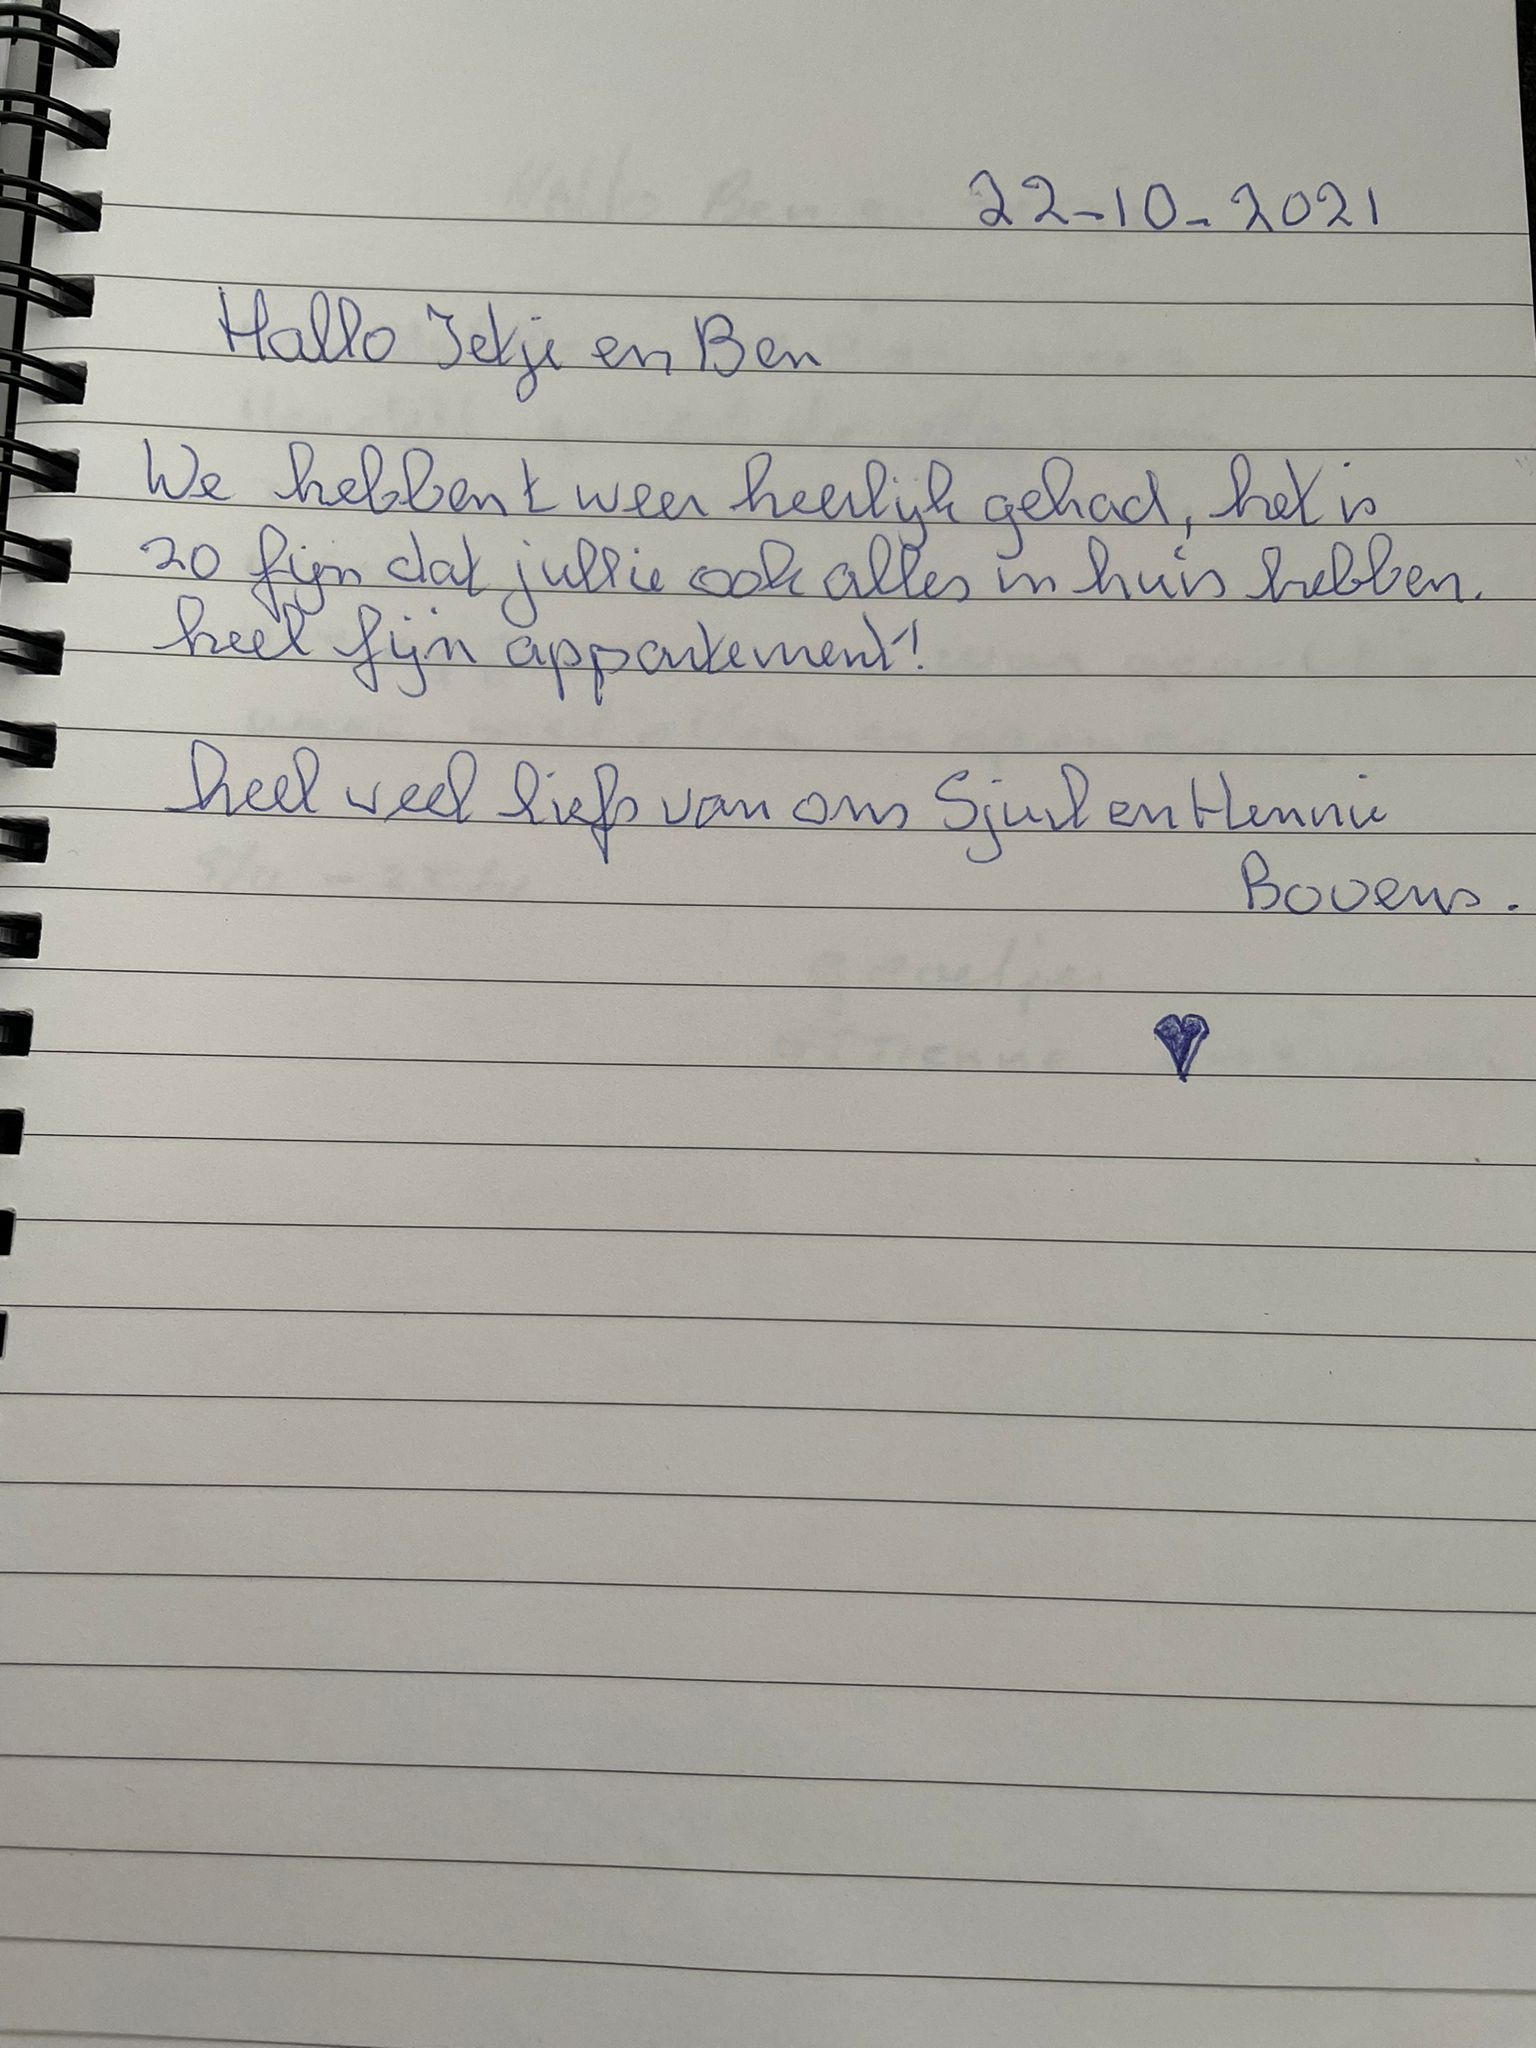 22-10-2021
Hallo Jetje en Ben
We hebben t weer heerlijk gehad, het is
zo fijn dat jullie ook alles in huis hebben.
heel fijn appartement!
heel veel liefs van ons Sjurl en Hennie
Bovens.